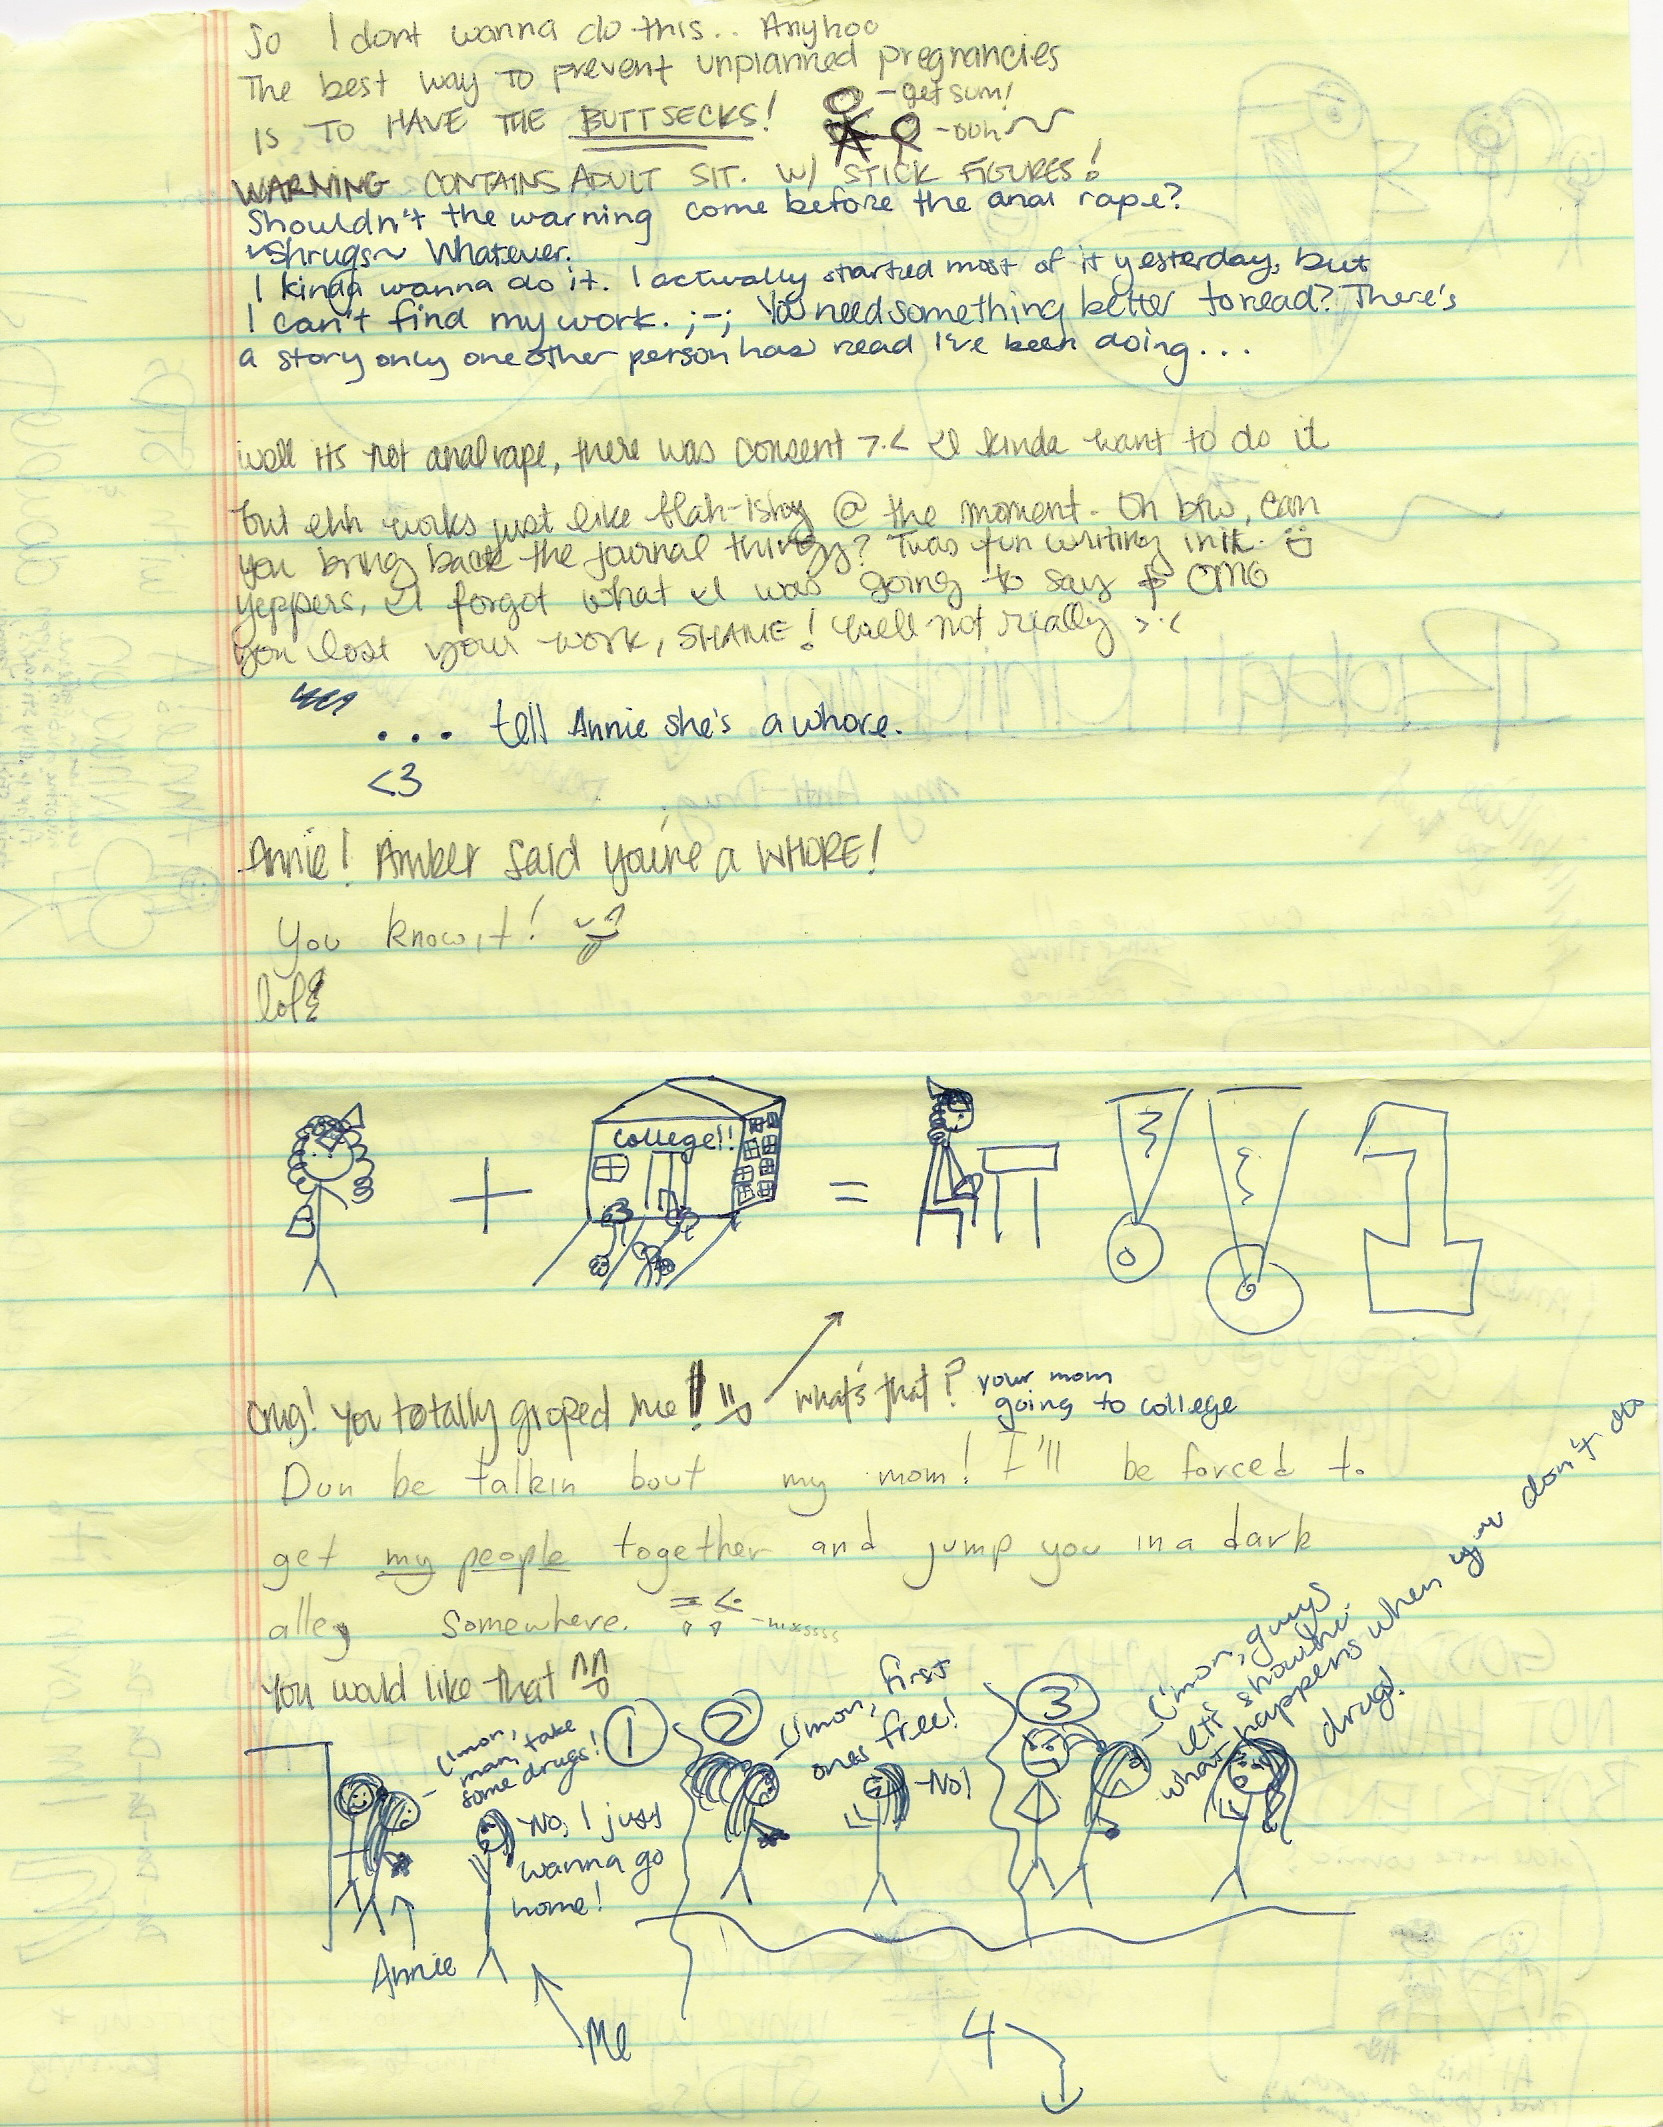 So I dont wanna do this.. Anyhoo
The best way to prevent unplanned pregnancies
is TO HAVE THE BUTTSECKS!
-get sum!
-ooh
WARNING CONTAINS ADULT SIT. W/ STICK FIGURES!
Shouldn't the warning come before the anal rape?
~Shrugs~ Whatever.
I kinda wanna do it. I actually started most of it yesterday, but
I can't find my work. ;-; You need something better to read? There's
a story only one other person has read I've been doing...
well its not anal rape, there was consent >.< I kinda want to do it
but ehh works just like blah-ishy @ the moment. Oh btw, can
you bring back the journal thingy? Twas fun writing in it.
yeppers, I forgot what I was going to say OMG
you lost your work, SHAME! Well not really >.<
... tell Annie she's a whore.
<3
Annie! Amber said you're a WHORE!
You know it!
lol
college!!
+ =
!!1
omg! You totally groped me!! what's that? your mom
going to college
Dun be talkin bout my mom! I'll be forced to
get my people together and jump you in a dark
alley somewhere. =<
You would like that ^^
1
C'mon,
man, take
some drugs!
No, I just
wanna go
home!
Annie
Me
2
C'mon, first
ones free!
-No!
3
-C'mon, guys
let's show her
what happens when you don't do
drugs!
4